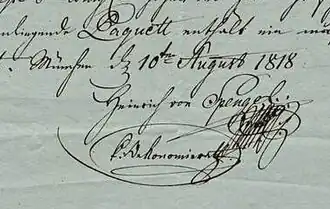 anliegende Paquett enthält ein
München d 10ten August 1818
Heinrich von Spengel
k. Oekonomierath